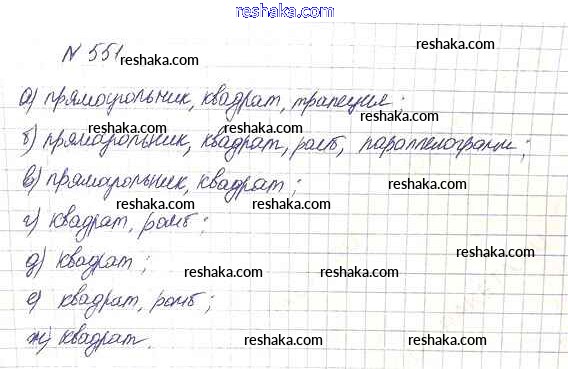 reshaka.com
N 551
reshaka.com reshaka.com
а) прямоугольник, квадрат, трапеция;
reshaka.com reshaka.com reshaka.com
б) прямоугольник, квадрат, ромб, параллелограмм;
в) прямоугольник, квадрат;
reshaka.com
г) квадрат, ромб;
reshaka.com reshaka.com
д) квадрат;
reshaka.com reshaka.com reshaka.com reshaka.com
е) квадрат, ромб;
ж) квадрат.
reshaka.com reshaka.com